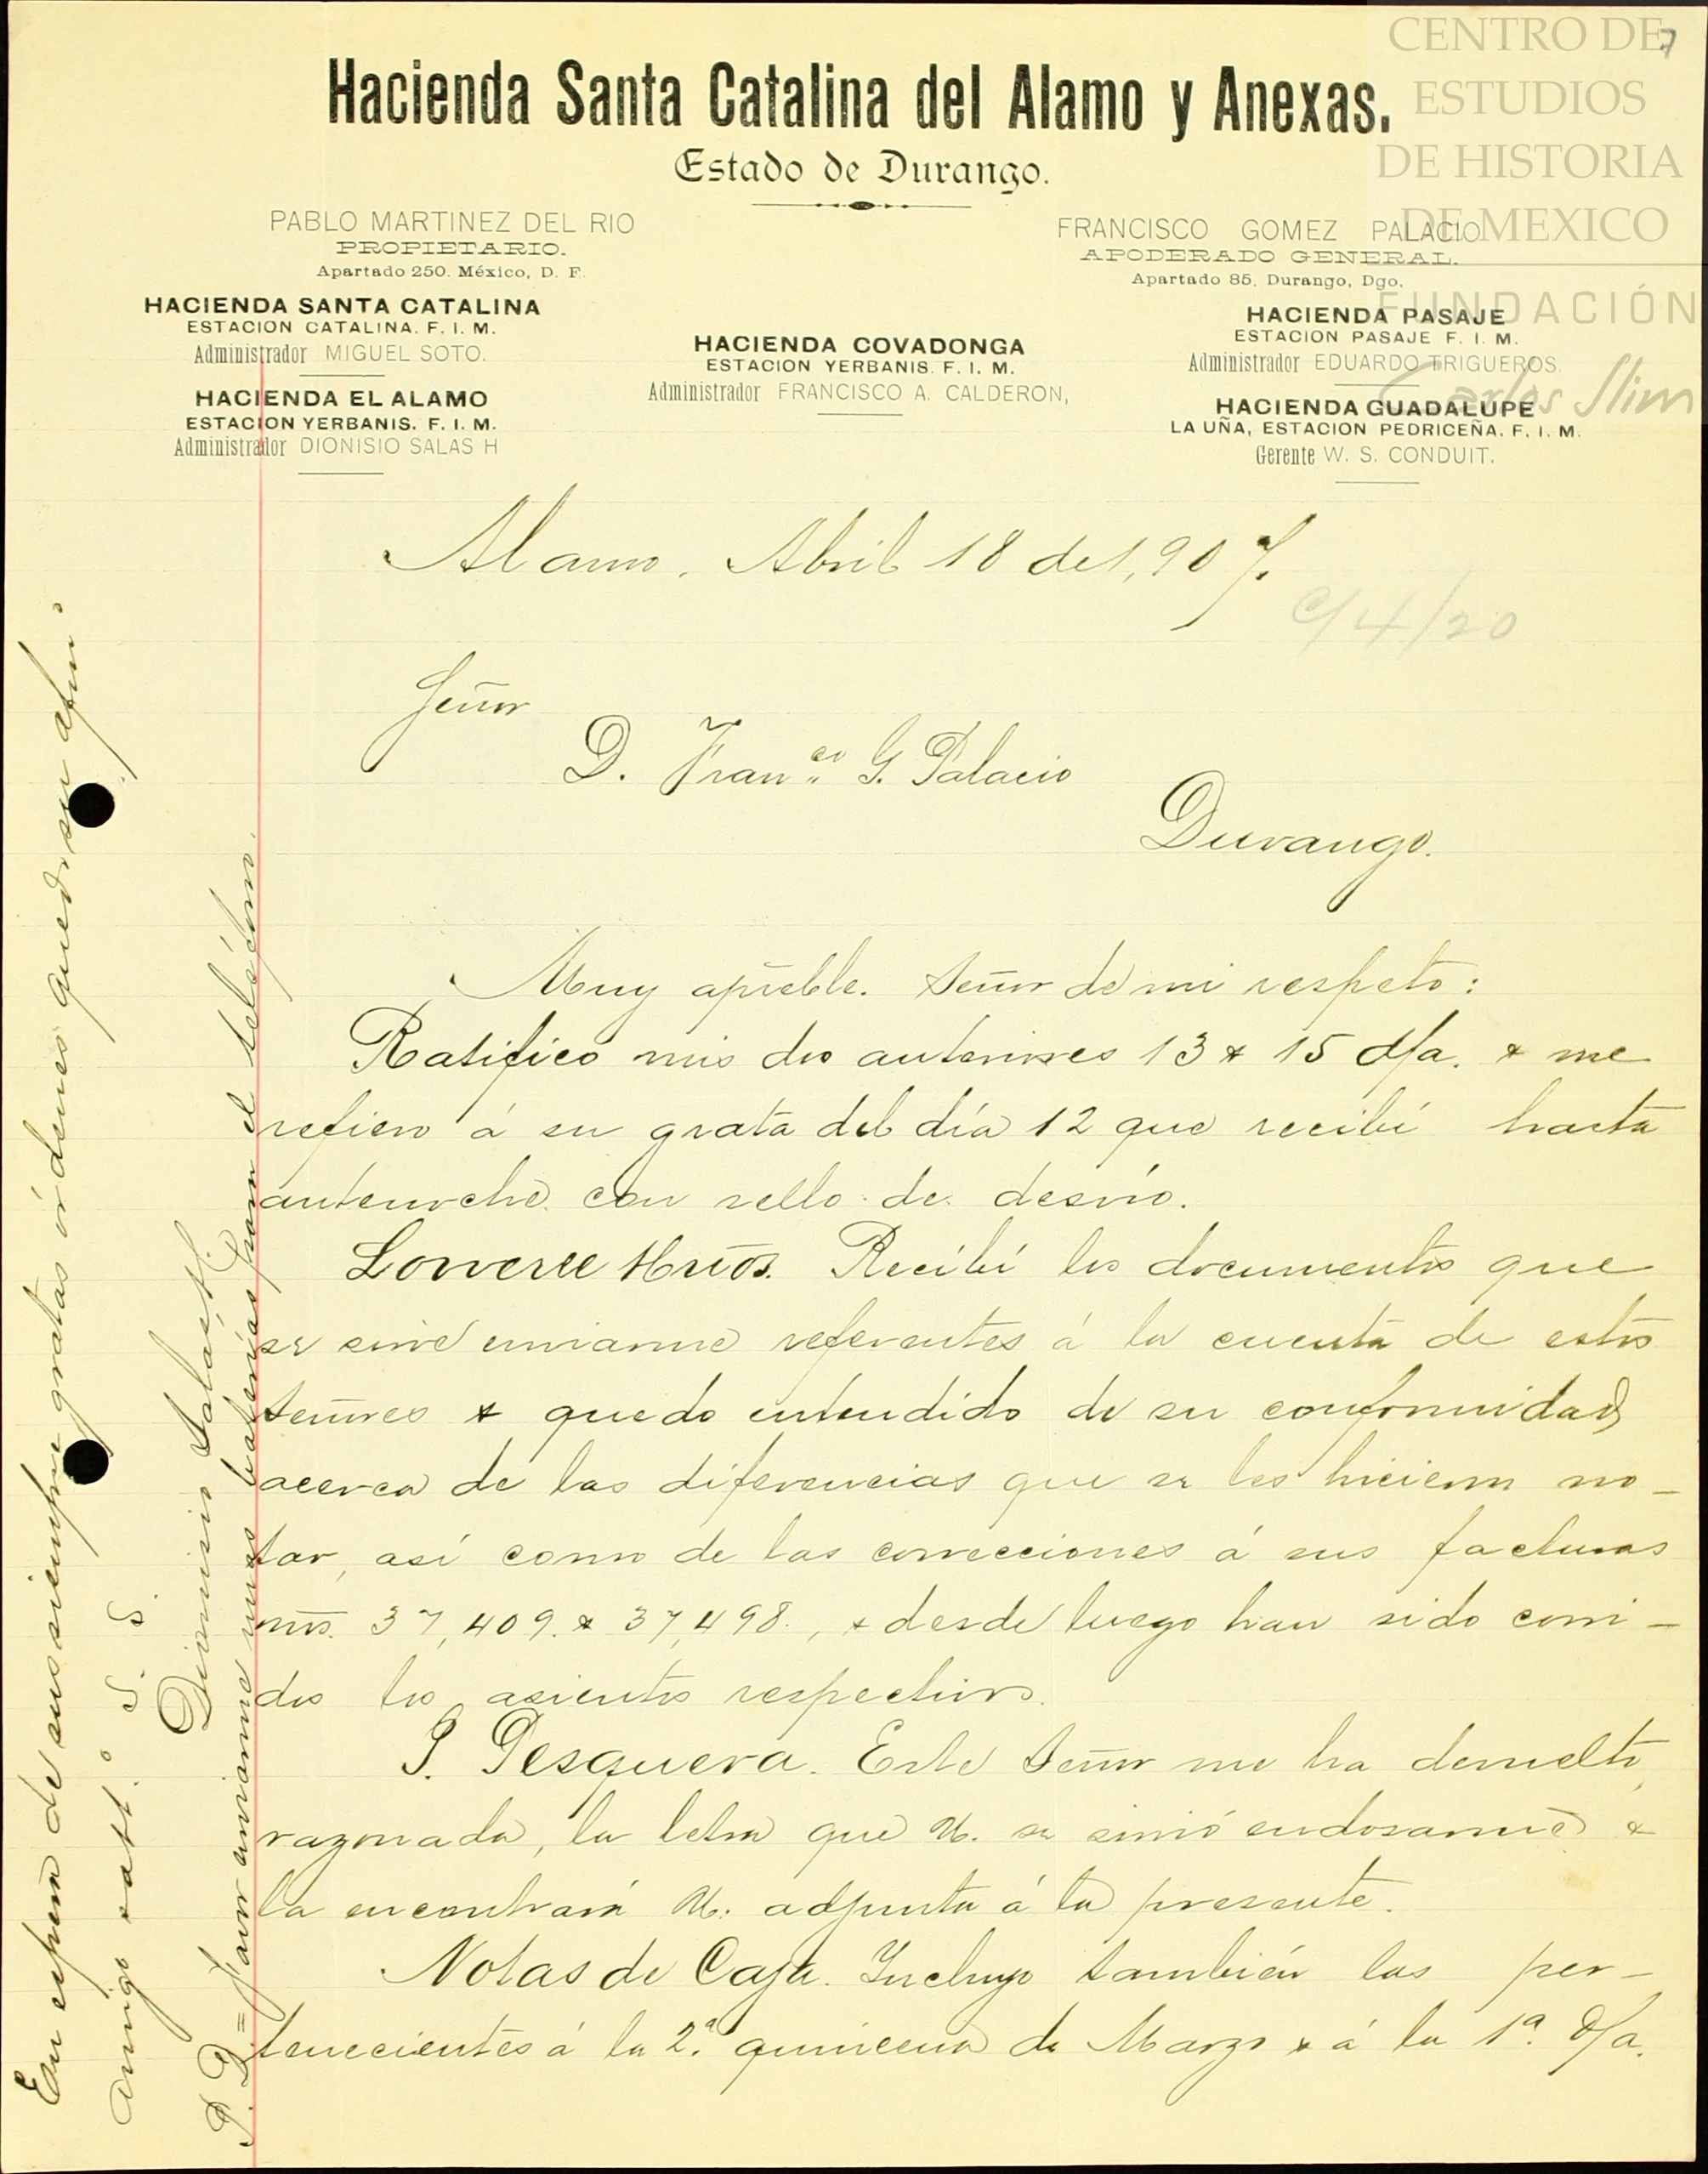 7
CENTRO DE
ESTUDIOS
DE HISTORIA
DE MEXICO
FUNDACIÓN
Carlos Slim
Hacienda Santa Catalina del Alamo y Anexas.
Estado de Durango.
PABLO MARTINEZ DEL RIO
PROPIETARIO.
Apartado 250. México, D. F.
FRANCISCO GOMEZ PALACIO
APODERADO GENERAL.
Apartado 85, Durango, Dgo.
HACIENDA SANTA CATALINA
ESTACION CATALINA. F. I. M.
Administrador MIGUEL SOTO.
HACIENDA EL ALAMO
ESTACION YERBANIS. F. I. M.
Administrador DIONISIO SALAS H
HACIENDA COVADONGA
ESTACION YERBANIS. F. I. M.
Administrador FRANCISCO A. CALDERON,
HACIENDA PASAJE
ESTACION PASAJE F. I. M.
Administrador EDUARDO TRIGUEROS.
HACIENDA GUADALUPE
LA UÑA, ESTACION PEDRICEÑA. F. I. M.
Gerente W. S. CONDUIT.
Alamo, Abril 18 de 1,907.
C/4/20
Señor
D. Franco G. Palacio
Durango.
Muy apreble. Señor de mi respeto:
Ratifico mis dos anteriores 13 & 15 d/a. & me
refiero á su grata del día 12 que recibí hasta
antenoche con sello de desvío.
Loweree Hnos. Recibí los documentos que
se sirve enviarme referentes á la cuenta de estos
señores & quedo entendido de su conformidad
acerca de las diferencias que se les hicieron no-
tar, así como de las correcciones á sus facturas
nos. 37,409. & 37,498., & desde luego han sido corri-
dos los asientos respectivos.
P. Pesquera. Este Señor me ha devuelto,
razonada, la letra que U. se sirvió endosarme &
la encontrará U. adjunta á la presente.
Notas de Caja. Incluyo también las per-
tenecientes á la 2ª. quincena de Marzo & á la 1ª. d/a.
En espera de sus siempre gratas órdenes quedo su afmo.
amigo & att.o S. S.
Dionisio Salas H.
P. D. = Favor enviarme unas baterías para el teléfono.